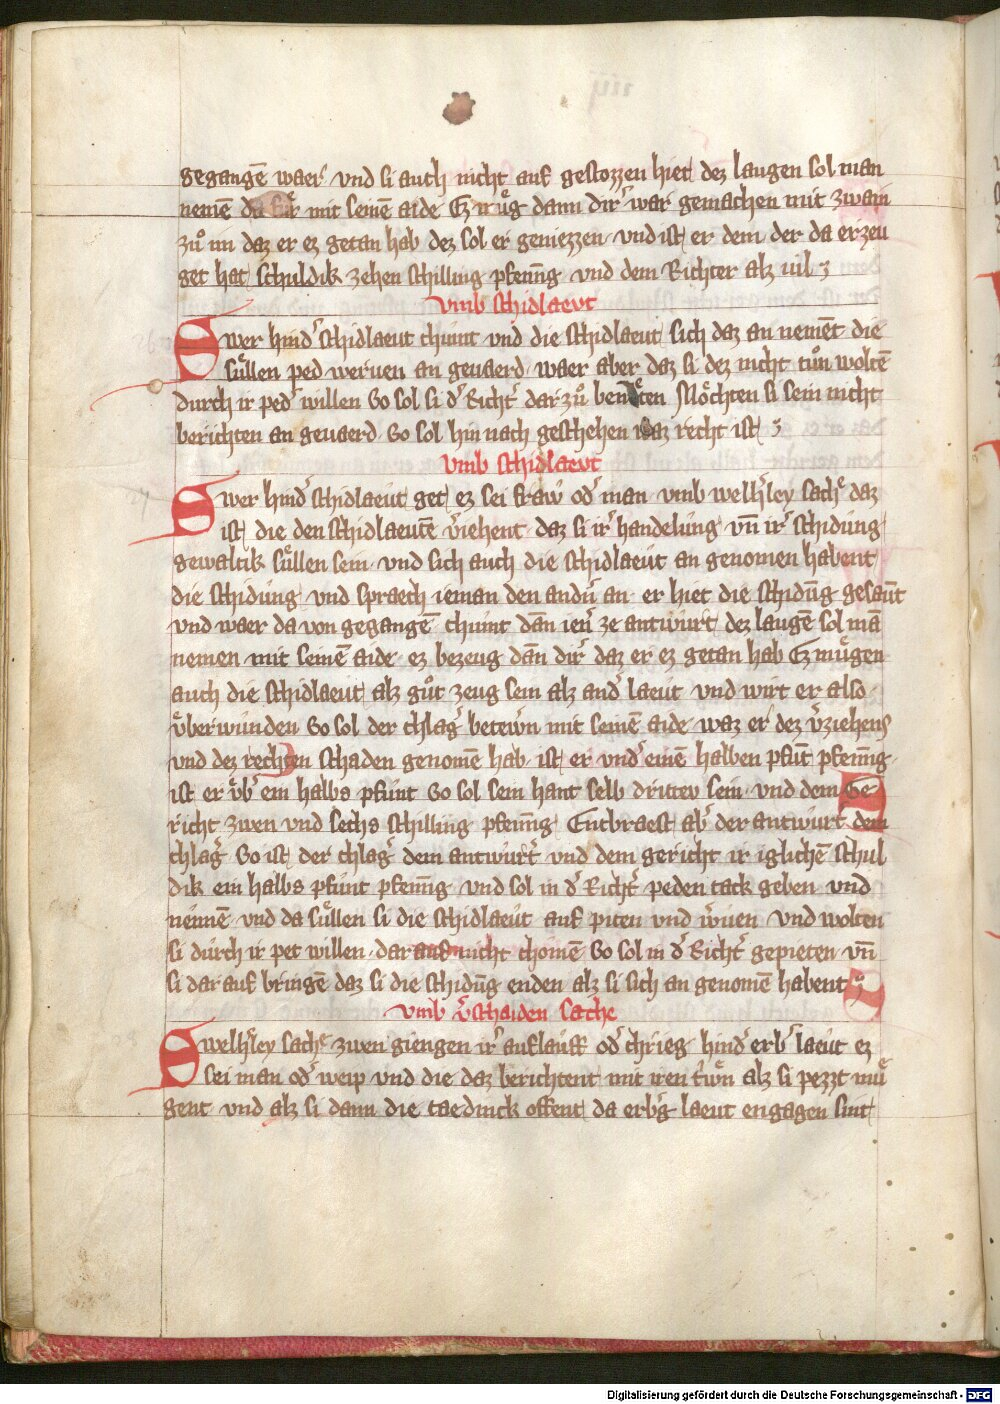 gegangē waer vnd si auch nicht auf gestozzen hiet dez laugen sol man
nemē da fuͤr mit seinē aide Ez muͤg dann dir͛ war gemachen mit zwain
zuͦ im daz er ez getan hab dez sol er geniezzen vnd ist er dem der da erzeu
get hat schuldik zehen schilling pfenīg vnd dem Richter alz uil
vmb schidlaevt
Swer hind͛ schidlaeut chumt vnd die schidlaeut sich daz an nement die
suͤllen ped weruen an geuaerd waer aber daz si dez nicht tuͦn woltē
durch ir ped͛ willen So sol si d͛ Richt͛ dar zuͦ benoͤten Moͤchten si sein nicht
berichten an geuaerd So sol hin nach geschehen waz recht ist
vmb schidlaevt
Swer hind͛ schidlaeut get ez sei fraw od͛ man vmb welh͛ley sach daz
ist die den schidlaeutē v͛iehent daz si ir͛ handelung vn̄ ir͛ schidung
gewaltik suͤllen sein vnd sich auch die schidlaeut an genomen habent
die schidung vnd spraech ieman den andn͛ an er hiet die schidūg gesaūt
vnd waer da von gegangē chumt dān ien͛ ze antwurt dez laugē sol mā
nemen mit seinē aide ez bezeug dān dir͛ daz er ez getan hab Ez muͤgen
auch die schidlaeut alz guͦt zeug sein alz and͛ laeut vnd wirt er also
vͤberwunden So sol der chlag͛ betewn͛ mit seinē aide waz er dez v͛ziehens
vnd dez rechten schaden genomē hab ist er vnd͛ einē halben pfūt pfenīg
ist er vͤb͛ ein halbs pfunt So sol sein hant selb dritrev sein vnd dem Ge
richt zwen vnd sechs schilling pfenīg Entbraest ab͛ der antwurt͛ dem
chlag͛ So ist der chlag͛ dem antwurt͛ vnd dem gericht ir iglichē schul
dik ein halbs pfunt pfenīg vnd sol in d͛ Richt͛ peden tack geben vnd
nennē vnd da suͤllen si die schidlaeut auf piten vnd w͛uen vnd wolten
si durch ir pet willen dar auf nicht chomē So sol in d͛ Richt͛ gepieten vn̄
si dar auf bringē daz si die schidūg enden alz si sich an genomē habent
vmb v͛schaiden sache
Swelh͛ley sach zwen giengen ir͛ auflauff od͛ chrieg hind͛ erb͛ laeut ez
sei man od͛ weip vnd die daz berichtent mit iren t͛wn̄ alz si pezzt muͤ
gent vnd alz si dann die taedinck offent da erb͛g laeut engagen sint